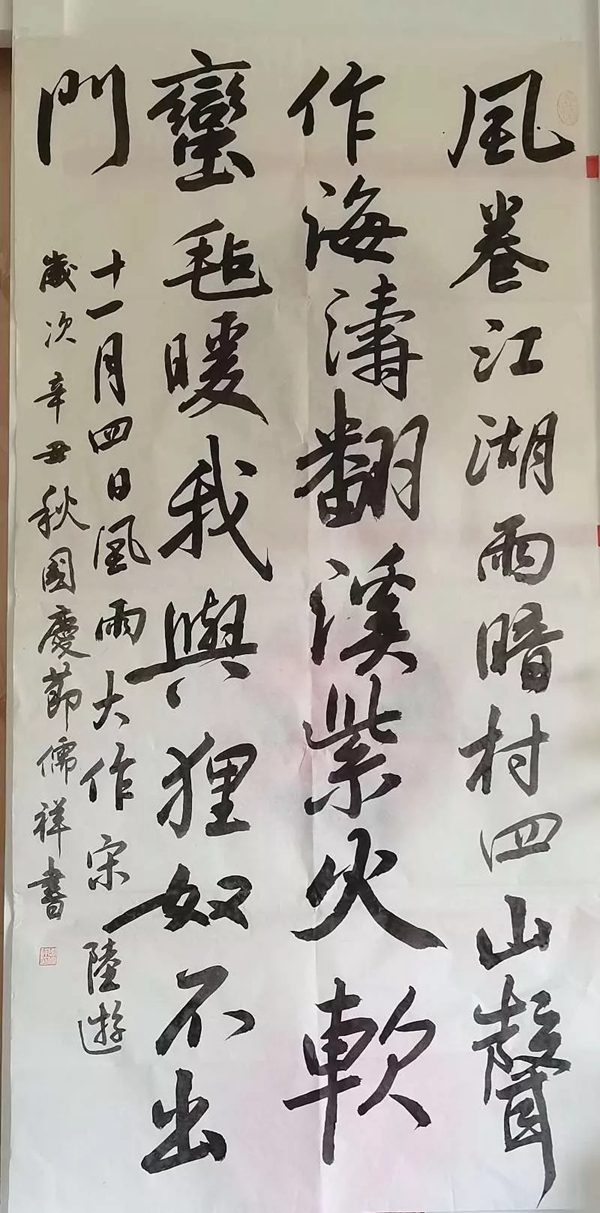 風卷江湖雨暗村四山聲
作海濤翻溪紫火軟
蠻毡暖我與狸奴不出
門
十一月四日風雨大作宋陸遊
歲次辛丑秋國慶節儒祥書